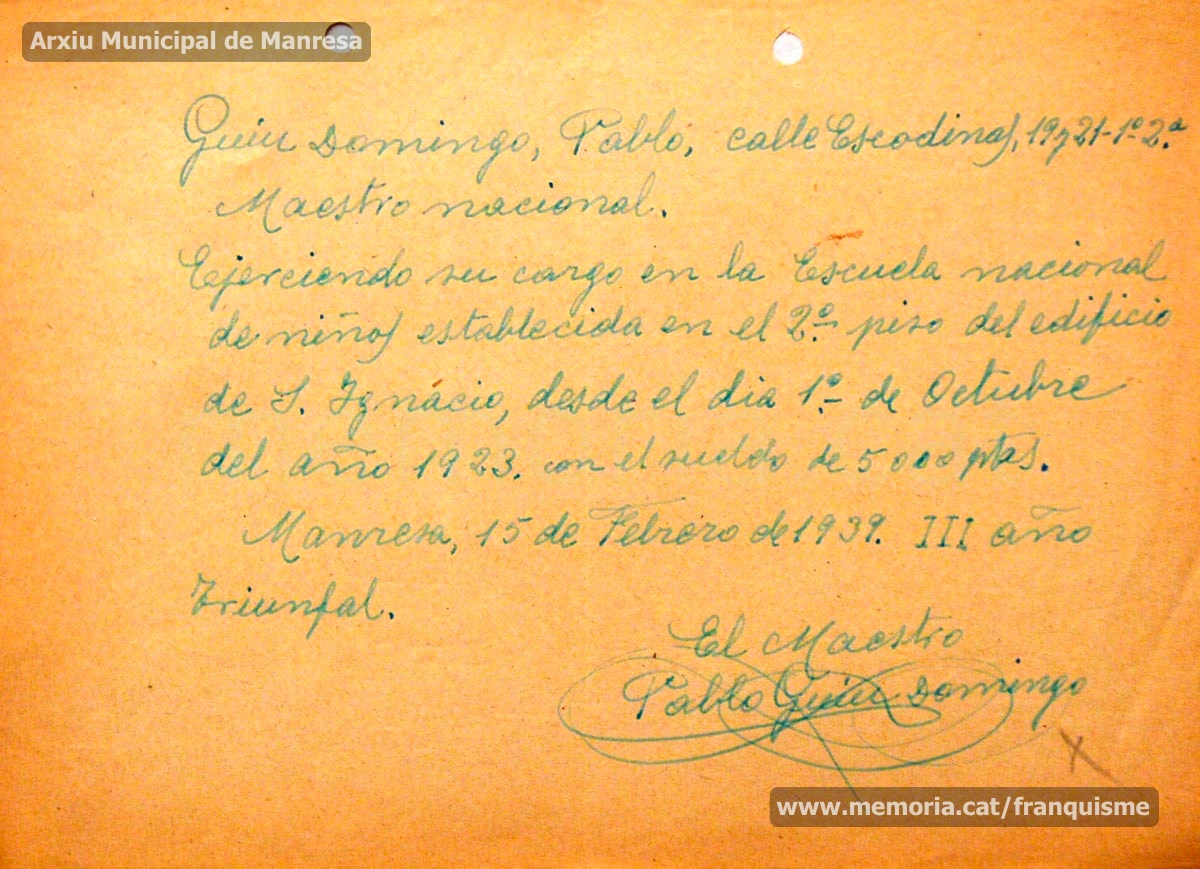 Arxiu Municipal de Manresa
Guiu Domingo, Pablo, calle Escodinas, 19 y 21-1º 2ª
Maestro nacional.
Ejerciendo su cargo en la Escuela nacional
de niños establecida en el 2º piso del edificio
de S. Ignacio, desde el dia 1º de Octubre
del año 1923. con el sueldo de 5000 ptas.
Manresa, 15 de Febrero de 1939. III año
Triunfal.
El Maestro
Pablo Guiu Domingo
www.memoria.cat/franquisme